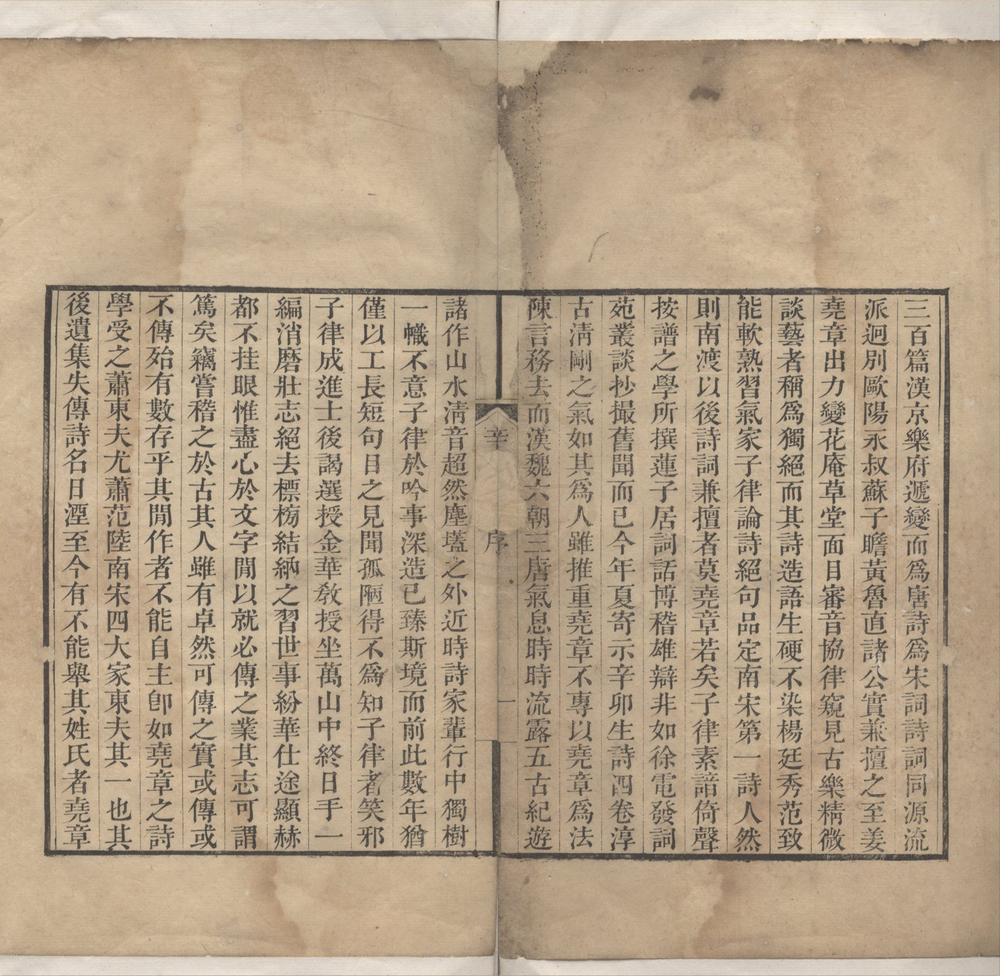 三百篇漢京樂府遞變而爲唐詩爲宋詞詩詞同源流
派迥別歐陽永叔蘇子瞻黃魯直諸公實兼擅之至姜
堯章出力變花庵草堂面目審音協律窺見古樂精微
談藝者稱爲獨絕而其詩造語生硬不染楊廷秀范致
能軟熟習氣家子律論詩絕句品定南宋第一詩人然
則南渡以後詩詞兼擅者莫堯章若矣子律素諳倚聲
按譜之學所撰蓮子居詞話博稽雄辯非如徐電發詞
苑叢談抄撮舊聞而已今年夏寄示辛卯生詩四卷淳
古淸剛之氣如其爲人雖推重堯章不專以堯章爲法
陳言務去而漢魏六朝三唐氣息時時流露五古紀遊
辛
序
一
諸作山水淸音超然塵壒之外近時詩家輩行中獨樹
一幟不意子律於吟事深造已臻斯境而前此數年猶
僅以工長短句目之見聞孤陋得不爲知子律者笑邪
子律成進士後謁選授金華敎授坐萬山中終日手一
編消磨壯志絕去標榜結納之習世事紛華仕途顯赫
都不挂眼惟盡心於文字閒以就必傳之業其志可謂
篤矣竊嘗稽之於古其人雖有卓然可傳之實或傳或
不傳殆有數存乎其閒作者不能自主卽如堯章之詩
學受之蕭東夫尤蕭范陸南宋四大家東夫其一也其
後遺集失傳詩名日湮至今有不能舉其姓氏者堯章